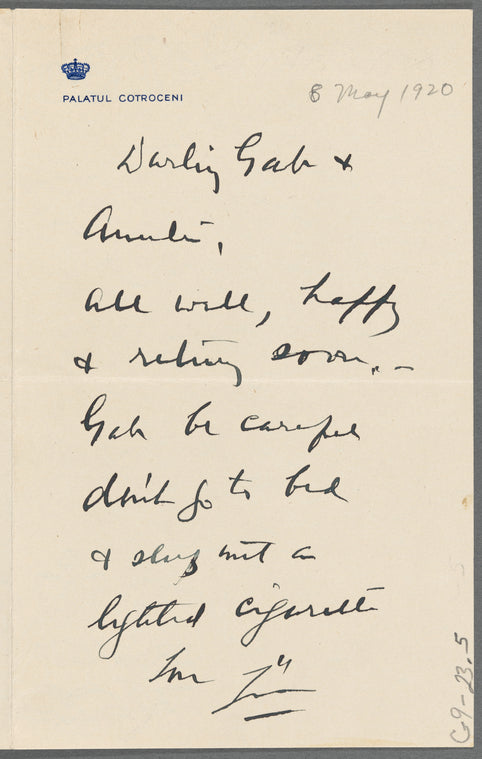 PALATUL COTROCENI
8 May 1920
Darling Gab &
Auntie,
all well, happy
& retiring soon. –
Gab be careful
don't go to bed
& sleep wit a
lighted cigarette
G9-23.5